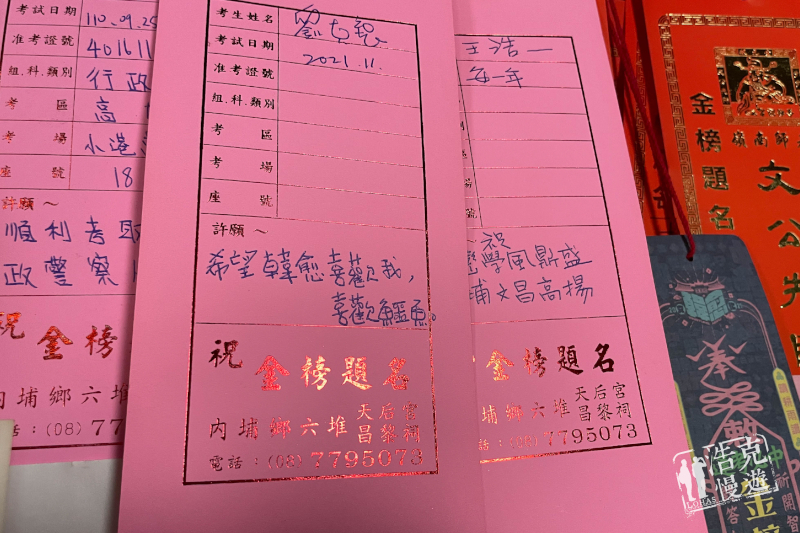 考試日期 110.09.25
准考證號 401611
組.科.類別 行政
考區 高
考場 小港
座號 18
許願~
順利考取
政警察
祝 金榜
內埔鄉六堆
(08) 77
考生姓名
考試日期 2021.11.
准考證號
組.科.類別
考區
考場
座號
許願~
希望韓愈喜歡我,
喜歡鱷魚。
祝 金榜題名
內埔鄉六堆 天后宮 昌黎祠
電話:(08)7795073
王浩一
每一年
祝
學風鼎盛
埔文昌高揚
金榜題名
埔鄉六堆 天后宮 昌黎祠
話:(08)7795073
金榜題名
文公
奉
浩克慢遊
LOHAS